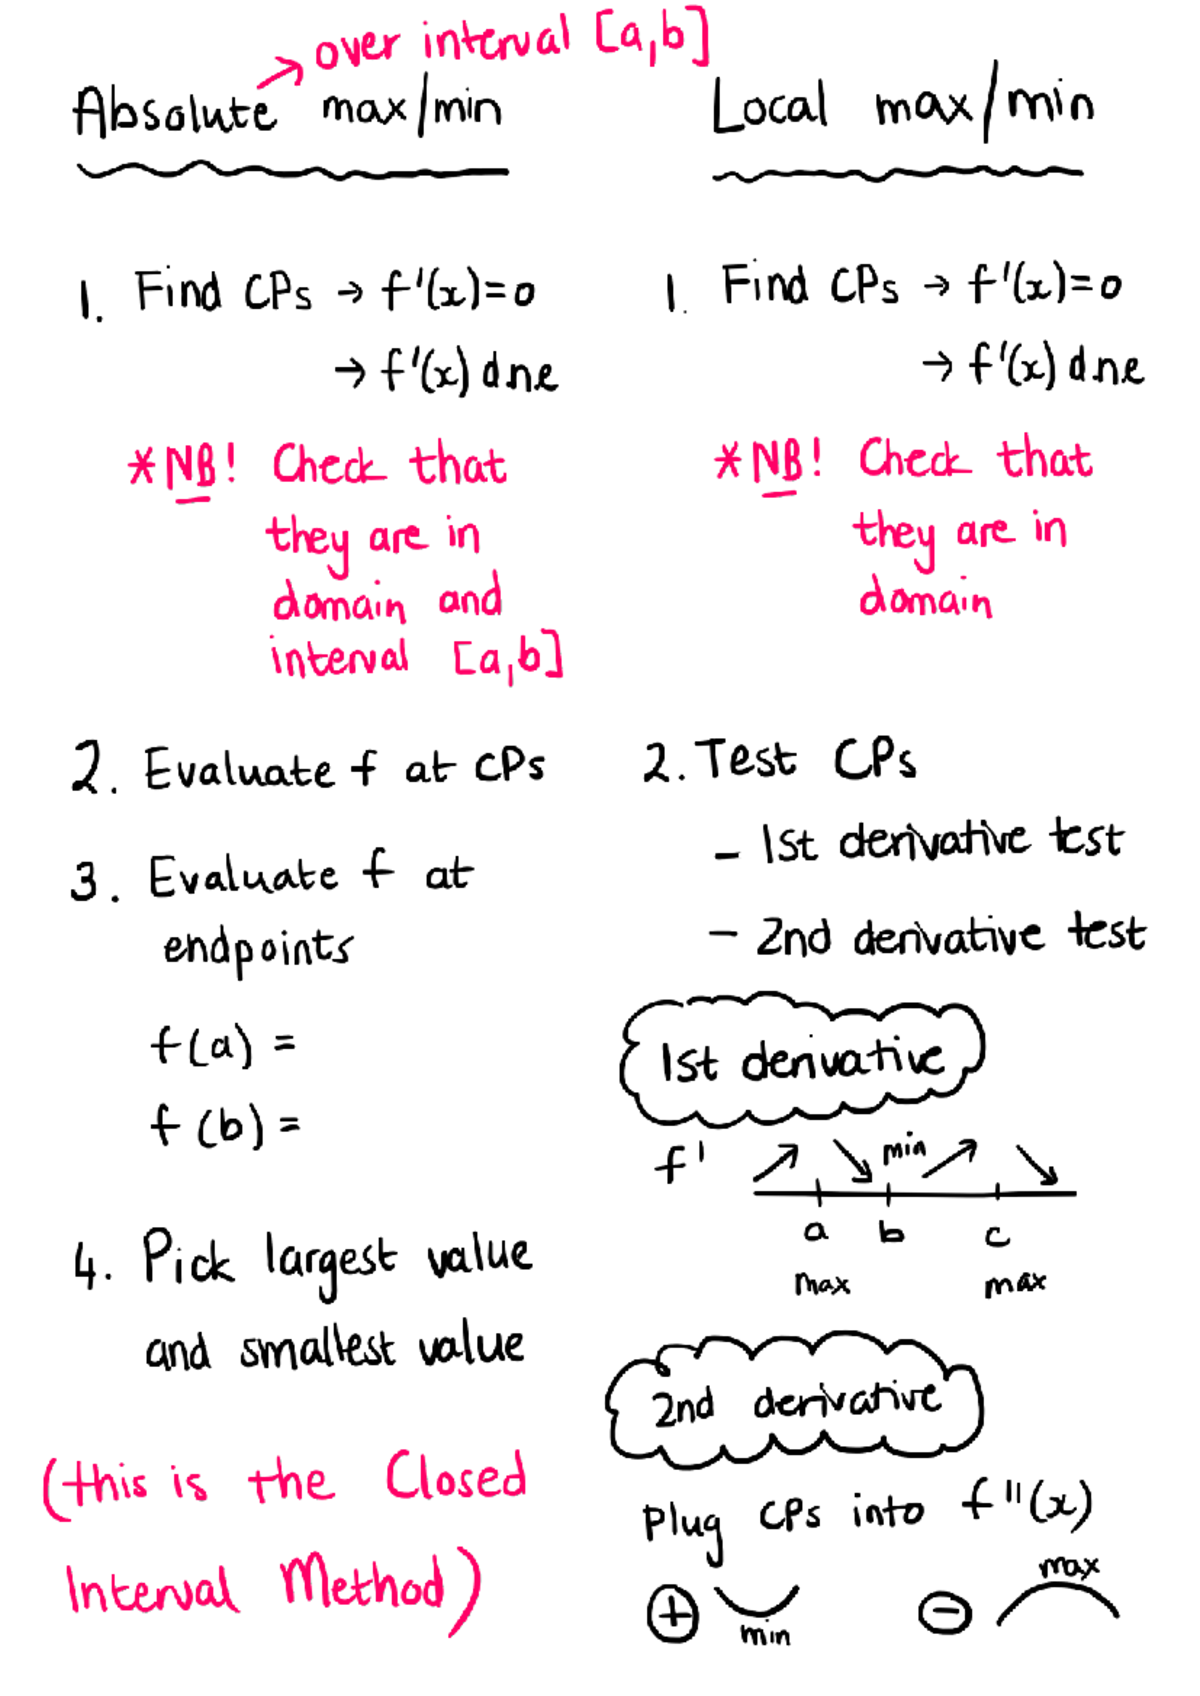 over interval [a,b]
Absolute → max/min
1. Find CPs → f'(x)=0
→ f'(x) d.n.e
*NB! Check that
they are in
domain and
interval [a,b]
2. Evaluate f at CPs
3. Evaluate f at
endpoints
f(a) =
f(b) =
4. Pick largest value
and smallest value
(this is the Closed
Interval Method)
Local max/min
1. Find CPs → f'(x)=0
→ f'(x) d.n.e
*NB! Check that
they are in
domain
2. Test CPs
- 1st derivative test
- 2nd derivative test
1st derivative
f' ↗ ↘ min ↗ ↘
a b c
max max
2nd derivative
Plug CPs into f''(x)
max
+ min −